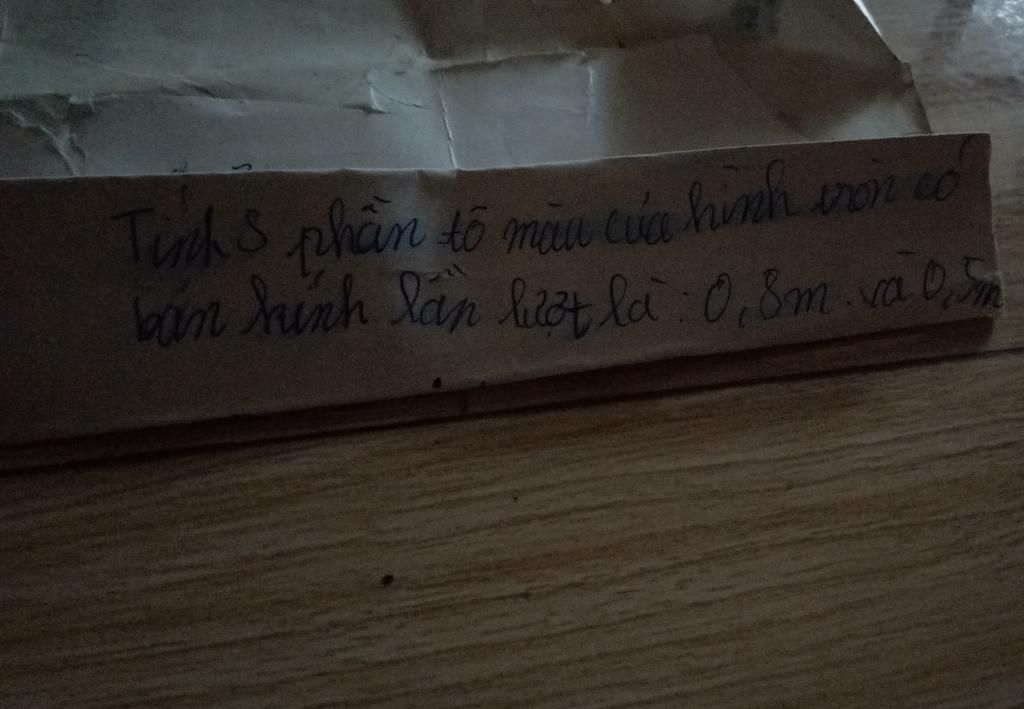 Tính S phần tô màu của hình tròn có
bán kính lần lượt là: 0,8m và 0,5m